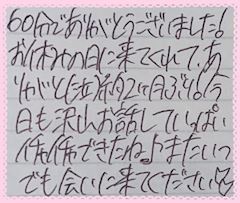 60分でありがとうございました!
お休みの日に来てくれて、あ
りがとう(泣)約2ヶ月ぶり!今
日も沢山お話していっぱい
イチャイチャできたね♪またいつ
でも会いに来てください♡